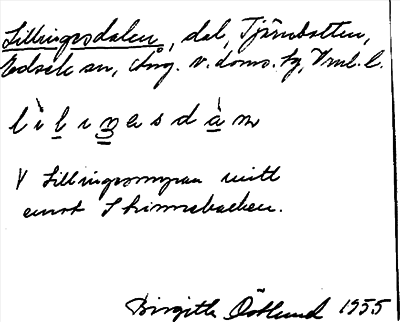 Lillingsdalen, dal, Tjärnbotten,
Edsele sn, Ång. v. doms. tg, Vrnl. l.
lìlıŋasdàn
V Lillingsmyran mitt
emot Skinnebacken.
Birgitta Östlund 1955